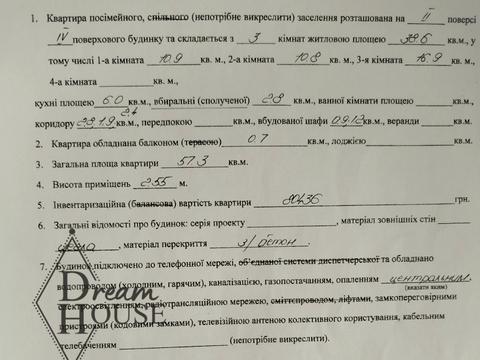 1. Квартира посімейного, спільного (непотрібне викреслити) заселення розташована на II поверсі
IV поверхового будинку та складається з 3 кімнат житловою площею 38.6 кв.м., у
тому числі 1-а кімната 10.9 кв. м., 2-а кімната 10.8 кв. м., 3-я кімната 16.9 кв. м.,
4-а кімната кв. м.,
кухні площею 6.0 кв.м., вбиральні (сполученої) 2.8 кв.м., ванної кімнати площею кв.м.,
коридору кв.м., передпокою кв.м., вбудованої шафи кв.м., веранди кв.м.
2. Квартира обладнана балконом (терасою) 0.7 кв.м., лоджією кв.м.
3. Загальна площа квартири 57.3 кв.м.
4. Висота приміщень 255 м.
5. Інвентаризаційна (балансова) вартість квартири 80436 грн.
6. Загальні відомості про будинок: серія проекту , матеріал зовнішніх стін
, матеріал перекриття з/бетон.
7. Будинок підключено до телефонної мережі, об'єднаної системи диспетчерської та обладнано
водопроводом (холодним, гарячим), каналізацією, газопостачанням, опаленням центральним,
(вказати яким)
електроосвітленням, радіотрансляційною мережею, сміттєпроводом, ліфтами, замкопереговірними
пристроями (кодовими замками), телевізійною антеною колективного користування, кабельним
телебаченням (непотрібне викреслити).
Dream
House